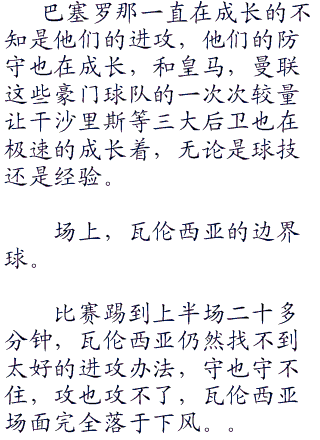 巴塞罗那一直在成长的不
知是他们的进攻，他们的防
守也在成长，和皇马，曼联
这些豪门球队的一次次较量
让干沙里斯等三大后卫也在
极速的成长着，无论是球技
还是经验。
场上，瓦伦西亚的边界
球。
比赛踢到上半场二十多
分钟，瓦伦西亚仍然找不到
太好的进攻办法，守也守不
住，攻也攻不了，瓦伦西亚
场面完全落于下风。。